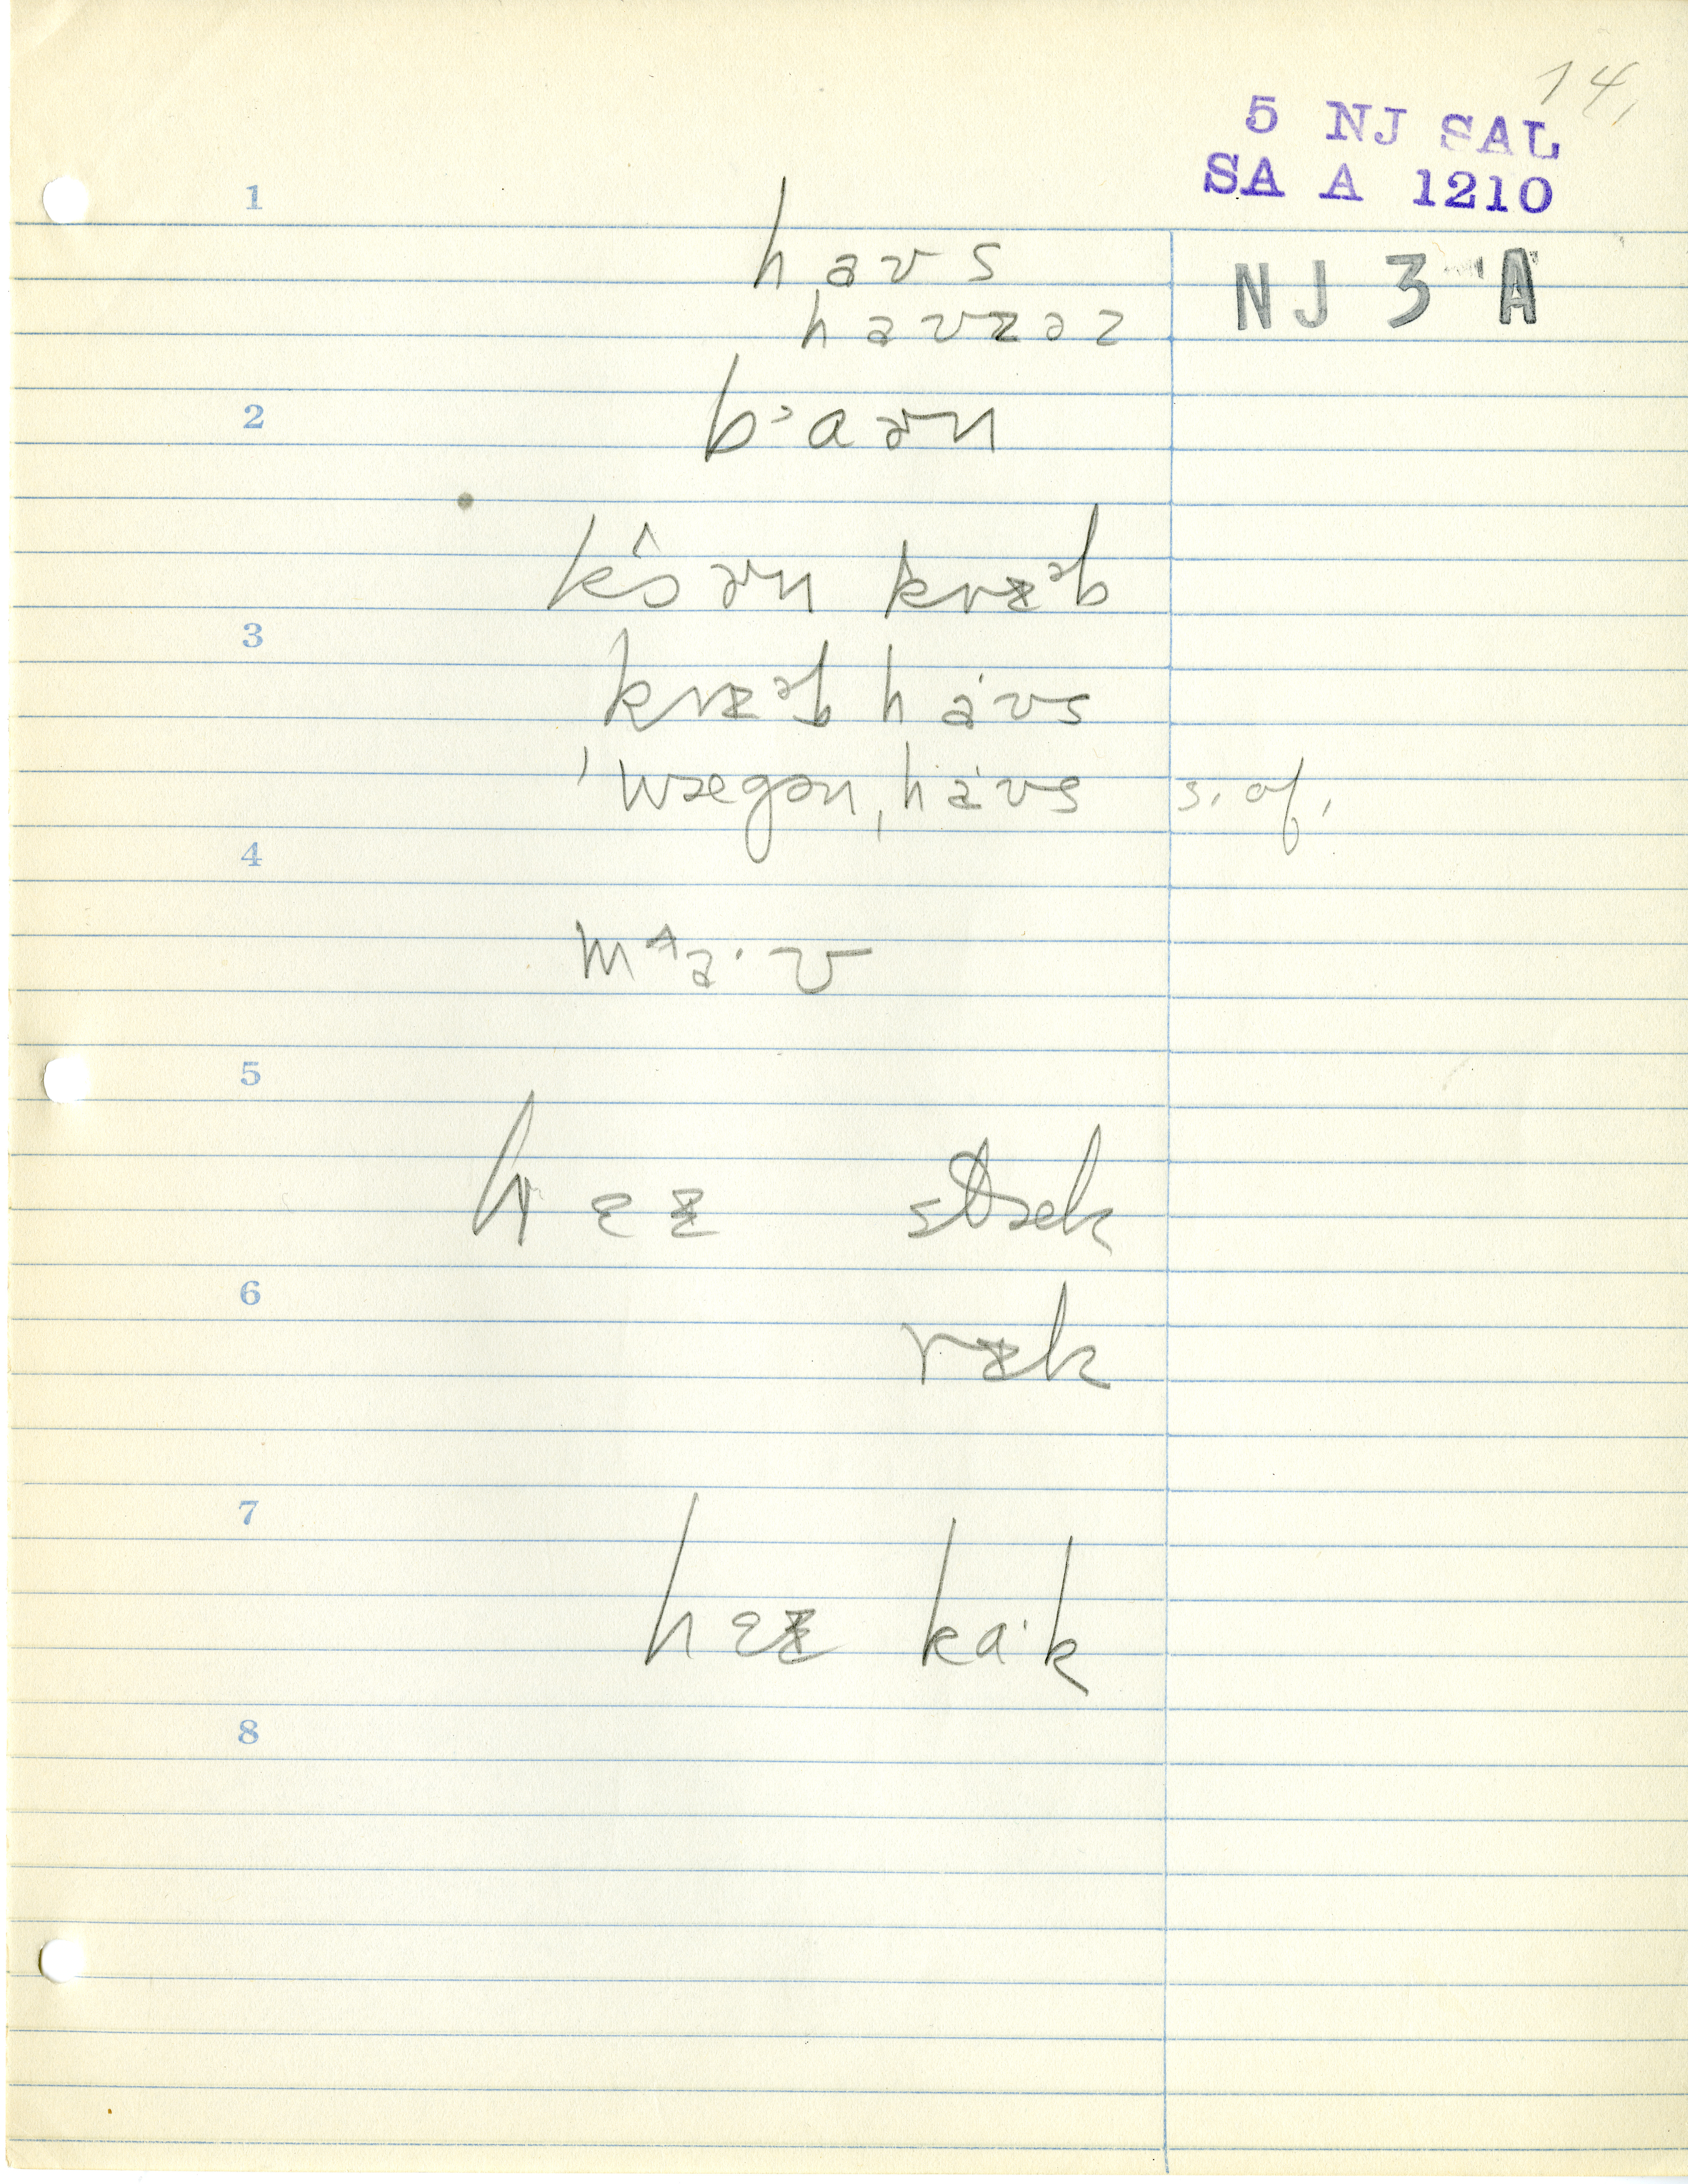 14.
5 NJ SAL
SA A 1210
NJ 3 A
1
haʊs
haʊzəz
2
b᾽aɚn
k̂ɔɚn krɪəb
3
krɪəb haˑʊs
ˈwægən ˌhaˑʊs s. of.
4
mᴧaˑʊ
5
hɛɪ stæk
6
rɪk
7
hɛɪ kaˑk
8